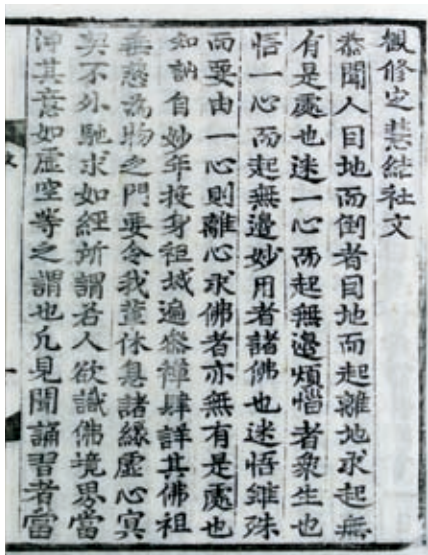 勸修定慧結社文
恭聞人因地而倒者因地而起離地求起無
有是處也迷一心而起無邊煩惱者衆生也
悟一心而起無邊妙用者諸佛也迷悟雖殊
而要由一心則離心求佛者亦無有是處也
知訥自妙年投身祖域遍叅禪肆詳其佛祖
垂慈為物之門要令我輩休息諸緣虛心冥
契不外馳求如經所謂若人欲識佛境界當
淨其意如虛空等之謂也凡見聞誦習者當